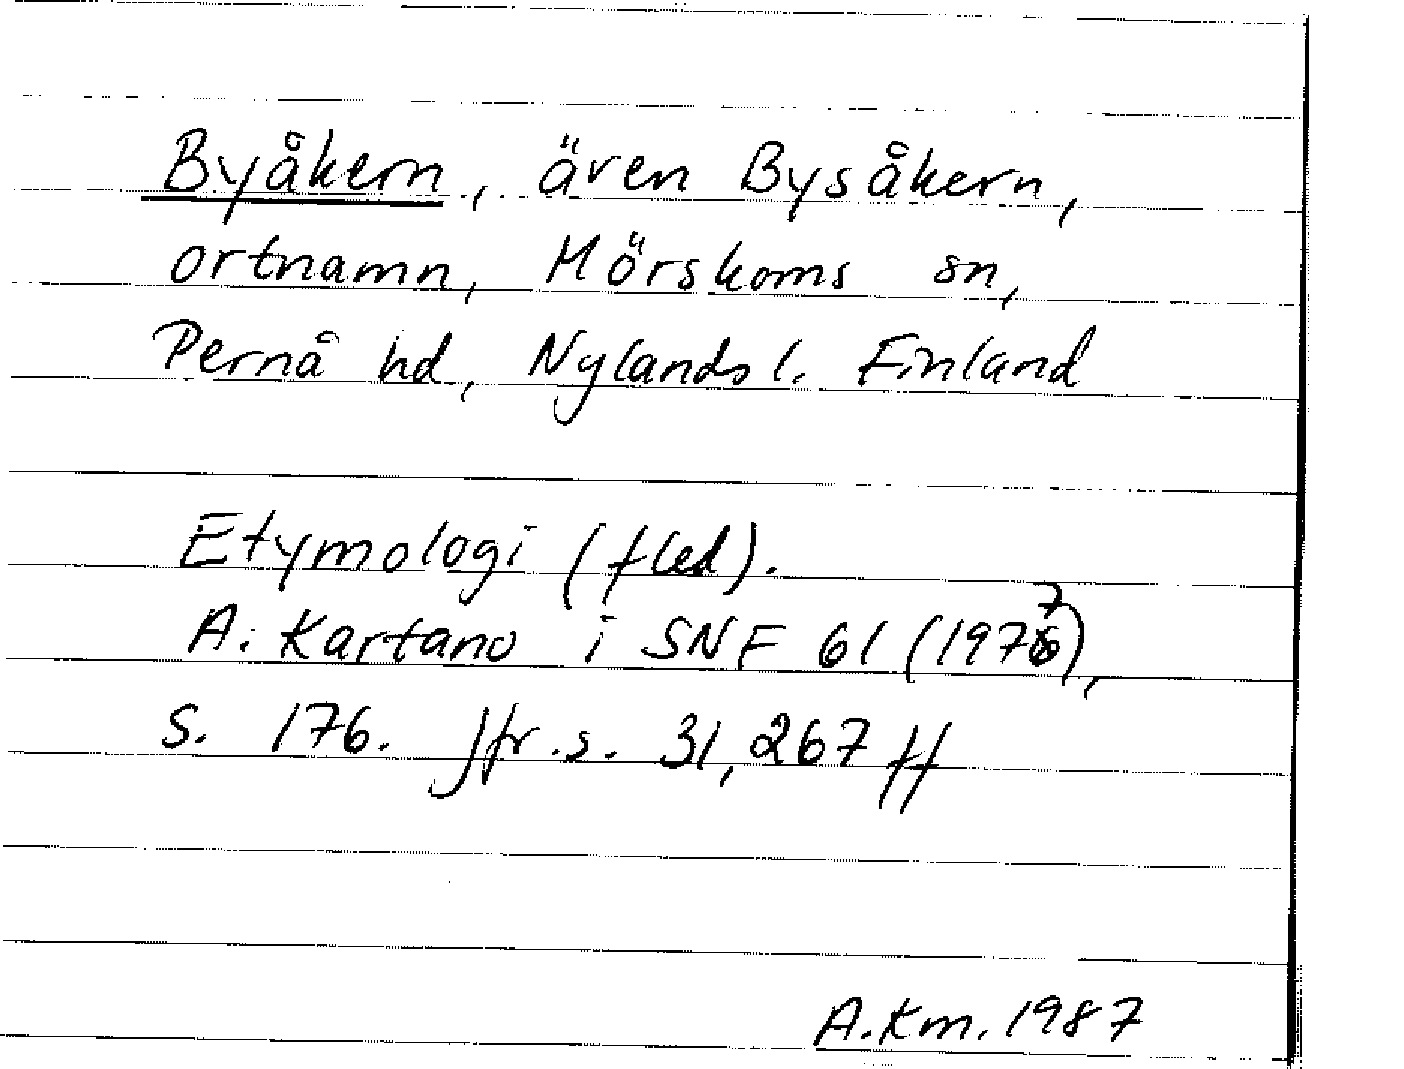 Byåkern, även Bysåkern,
ortnamn, Mörskoms sn,
Pernå hd, Nylands l. Finland
Etymologi (fled).
A. Kartano i SNF 61 (1977),
s. 176. Jfr. s. 31, 267 ff
A.Km. 1987